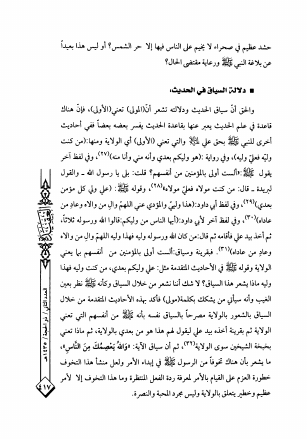 حشد عظيم في صحراء لا يخيم على الناس فيها إلا حر الشمس؟ أو ليس هذا بعيداً
عن بلاغة النبي ﷺ ورعاية مقتضى الحال؟
■ دلالة السياق في الحديث:
والحق أنّ سياق الحديث ودلالته تشعر أنّ(المولى) تعني(الأولى)، فإنّ هناك
قاعدة في علم الحديث يعبر عنها بقاعدة الحديث يفسر بعضه بعضاً ففي أحاديث
أخرى للنبي ﷺ بحق علي والتي (تعني الأولى) أي الولاية ومنها: (من كنت
وليّه فعليّ وليه)، وفي رواية :(هو وليكم بعدي وأنه مني وأنا منه)(٢٧)، وفي لفظ آخر
يقول ﷺ:«ألست أولى بالمؤمنين من أنفسهم؟ قلت: بلى يا رسول الله ـ والقول
لبريدة ـ قال: من كنت مولاه فعليّ مولاه»(٢٨)، وقوله ﷺ: (علي ولي كل مؤمن
بعدي)(٢٩)، وفي لفظ أبي داود:(هذا وليّي والمؤدي عني اللهمّ والِ من والاه وعادِ من
عاداه)(٣٠)، وفي لفظ آخر لأبي داود:(أيها الناس من وليكم: قالوا الله ورسوله ثلاثاً،
ثم أخذ بيد علي فأقامه ثم قال:من كان الله ورسوله وليه فهذا وليه اللهمّ والِ من والاه
وعادِ من عاداه)(٣١). فبقرينة وسياق:ألست أولى بالمؤمنين من أنفسهم بما يعني
الولاية وقوله ﷺ في الأحاديث المتقدمة مثل: علي وليكم بعدي، من كنت وليه فهذا
وليه ماذا يشعر هذا السياق؟ لا شك أننا نشعر من خلال السياق وكأنه ﷺ نظر بعين
الغيب وأنه سيأتي من يشكك بكلمة(مولى) فأكد بهذه الأحاديث المتقدمة من خلال
السياق بالشعور بالولاية مصرحاً بالسياق نفسه بأنه ﷺ من أنفسهم التي تعني
الولاية ثم بقرينة أخذه بيد علي ليقول لهم هذا هو من بعدي بالولاية، ثم ماذا تعني
بخبخة الشيخين سوى الولاية(٣٢)، ثم أن سياق الآية: «وَاللهُ يَعْصِمُكَ مِنَ النَّاسِ»،
ما يشعر بأن هناك تخوفاً من الرسول ﷺ في إبداء الأمر ولعل منشأ هذا التخوف
خطورة العزم على القيام بالأمر لمعرفة ردة الفعل المنتظرة وما هذا التخوف إلا لأمر
عظيم وخطير يتعلق بالولاية وليس مجرد المحبة والنصرة.
العدد الثاني/ ذو الحجة/ ١٤٣٥هـ
٤١٧